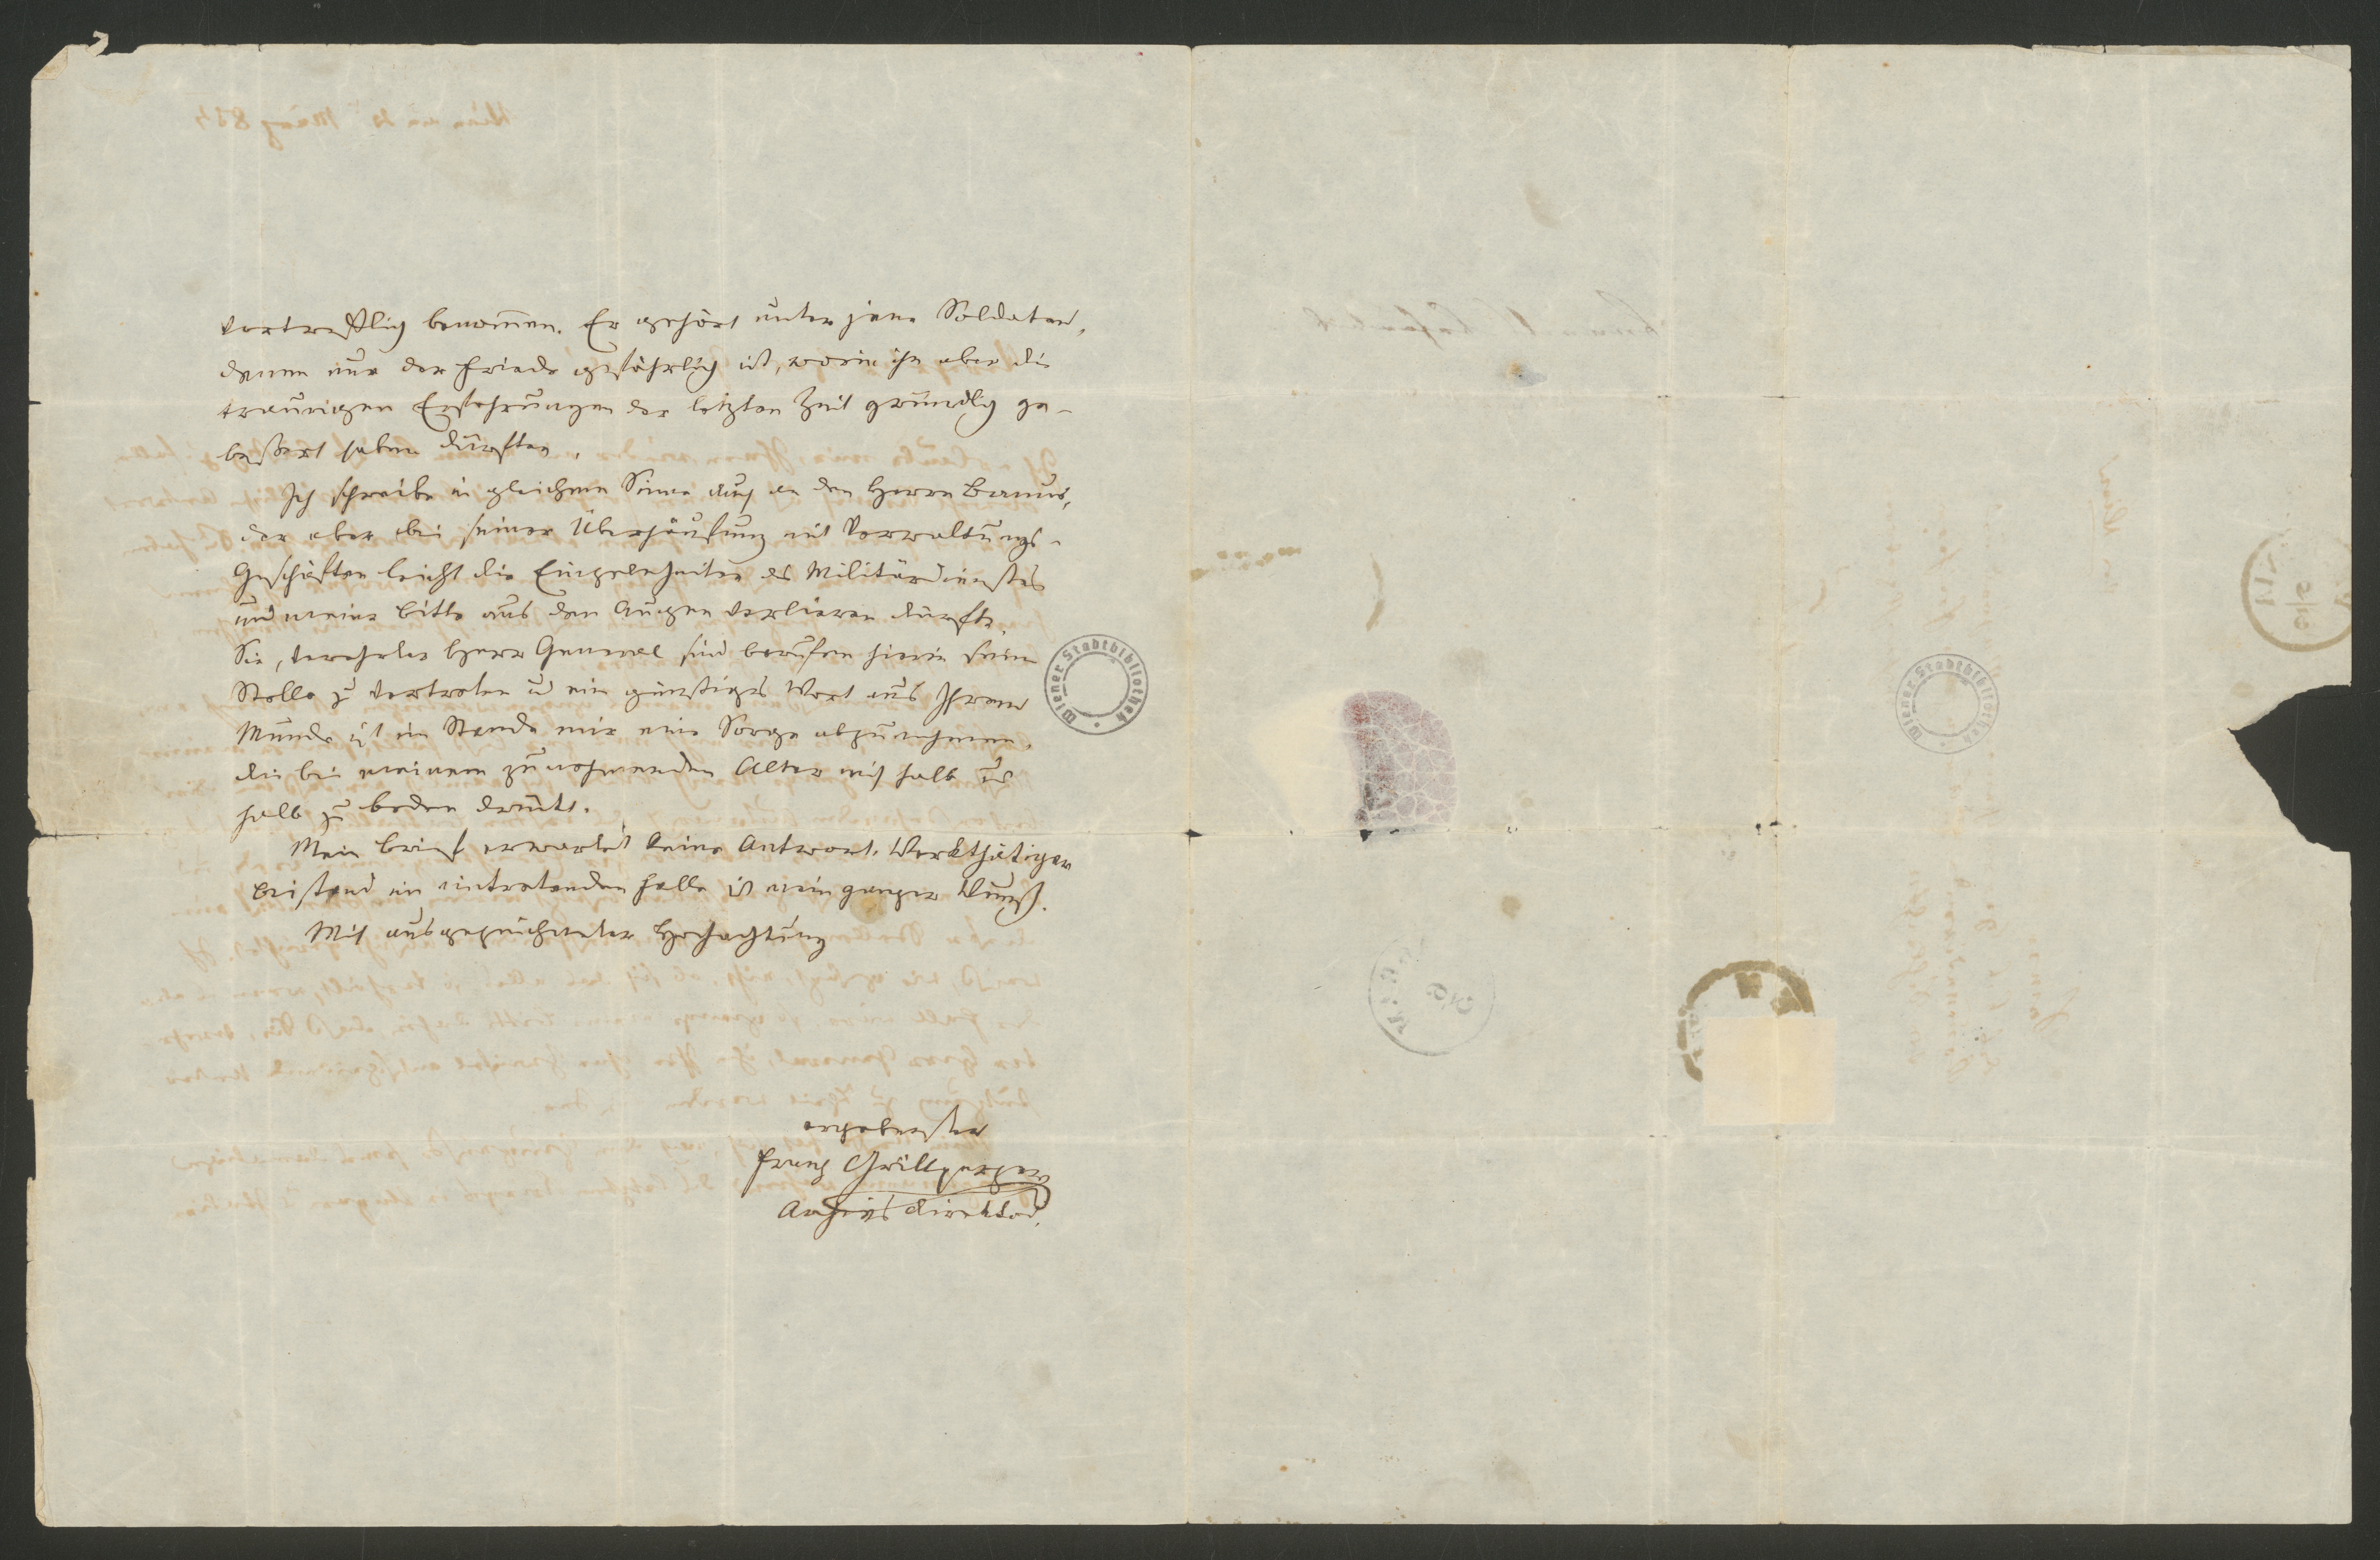 vortrefflich benommen. Er gehört unter jene Soldaten,
denen nur der Friede gefährlich ist, worin ihn aber die
traurigen Erfahrungen der letzten Zeit gründlich ge-
bessert haben dürften.
Ich schreibe in gleichem Sinne auch an den Herrn Banus,
der aber bei seiner Überhäufung mit Verwaltungs-
Geschäften leicht die Einzelnheiten des Militärdienstes
und meine Bitte aus den Augen verlieren dürfte.
Sie, verehrter Herr General sind berufen hierin seine
Stelle zu vertreten u ein günstiges Wort aus Ihrem
Munde ist im Stande mir eine Sorge abzunehmen,
die bei meinem zunehmenden Alter mich halb und
halb zu Boden drückt.
Mein Brief erwartet keine Antwort. Werkthätiger
Beistand im eintretenden Falle ist mein ganzer Wunsch.
Mit ausgezeichneter Hochachtung
ergebenster
Franz Grillparzer
Archivsdirektor.
Wiener Stadtbibliothek
Wiener Stadtbibliothek